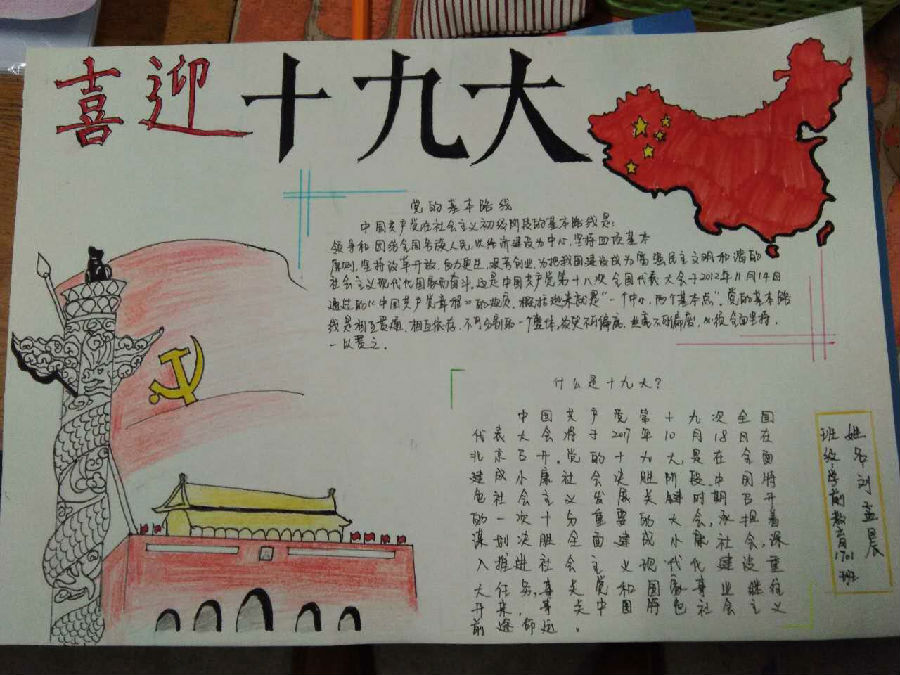 喜迎十九大
党的基本路线
中国共产党在社会主义初级阶段的基本路线是:
领导和团结全国各族人民,以经济建设为中心,坚持四项基本
原则,坚持改革开放,自力更生,艰苦创业,为把我国建设成为富强民主文明和谐的
社会主义现代化国家而奋斗,这是中国共产党第十八次全国代表大会于2012年11月14日
通过的“中国共产党章程”的规定,概括起来就是“一个中心,两个基本点”,党的基本路
线是相互贯通,相互依存,不可分割的一个整体,必须全面坚持,
一以贯之.
什么是十九大?
中国共产党第十九次全国
代表大会将于2017年10月18日在
北京召开,党的十九大,是在全面
建成小康社会决胜阶段,中国特
色社会主义发展关键时期召开
的一次十分重要的大会,承担着
谋划决胜全面建成小康社会,深
入推进社会主义现代化建设重
大任务,事关党和国家事业继往
开来,事关中国特色社会主义
前途命运.
姓名刘孟晨
班级:学前教育1701班